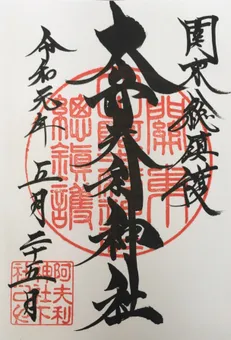 関東総鎮護
大山阿夫利神社
令和元年 五月 二十五日
關東
總鎮護
阿夫利
神社下
社之印